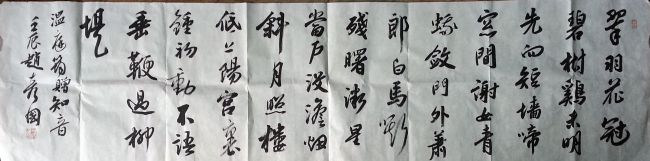 翠羽花冠
碧樹鷄未明
先向短墙啼
窓間謝女青
蛾斂門外蕭
郎白馬嘶
殘曙微星
當户没澹烟
斜月照樓
低上陽宫裏
鍾初動不語
垂鞭過柳
堤
温庭筠贈知音
壬辰趙國